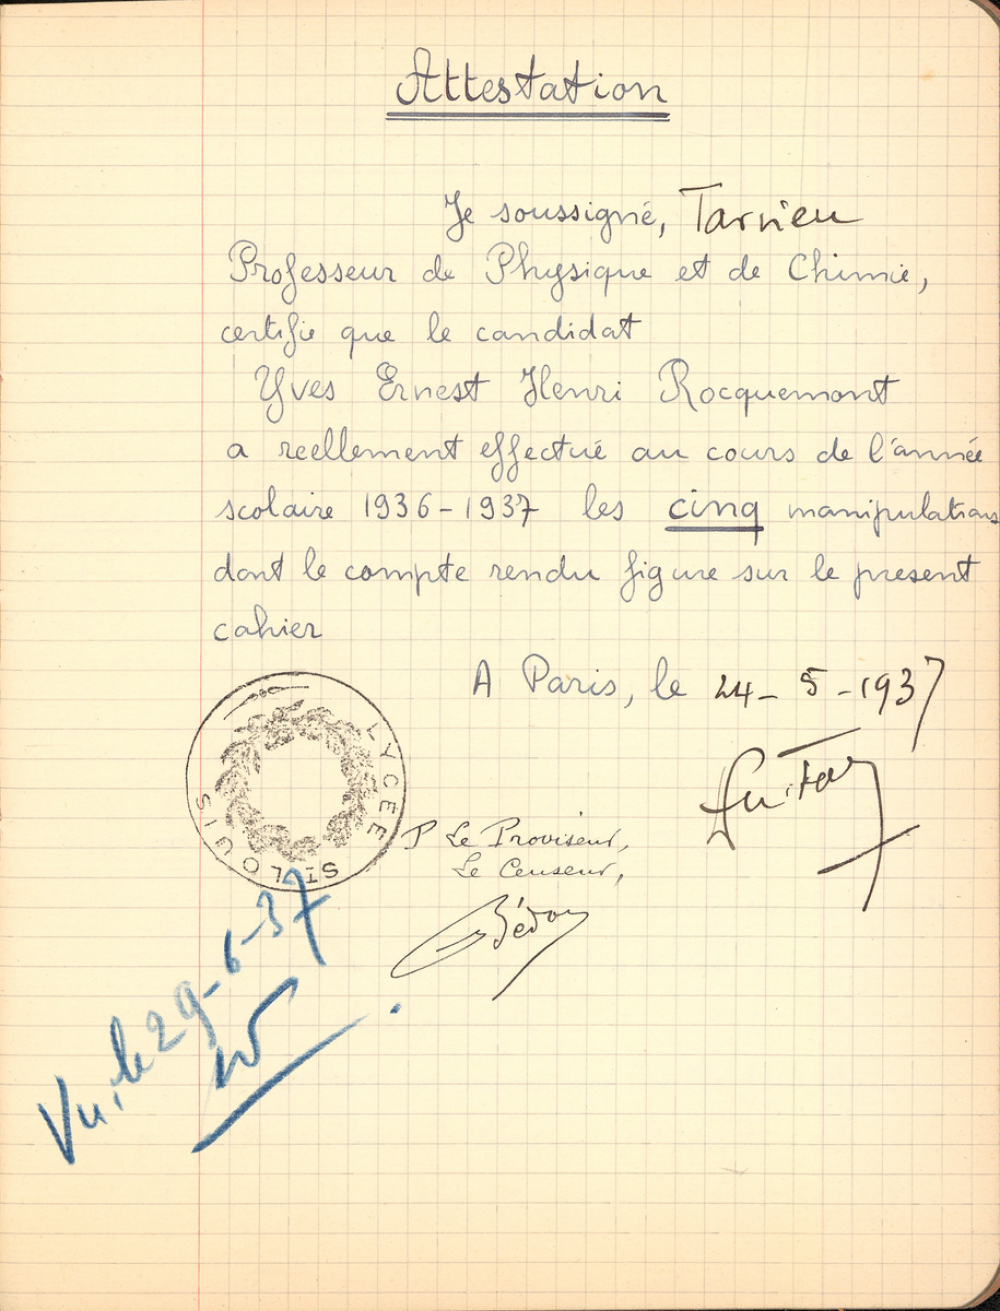 Attestation
Je soussigné, Tarnieu
Professeur de Physique et de Chimie,
certifie que le candidat
Yves Ernest Henri Rocquemont
a reellement effectué au cours de l'année
scolaire 1936-1937 les cinq manipulations
dont le compte rendu figure sur le present
cahier
A Paris, le 24-5-1937
LYCÉE
ST LOUIS
P Le Proviseur,
Le Censeur,
Vu, le 29-6-37